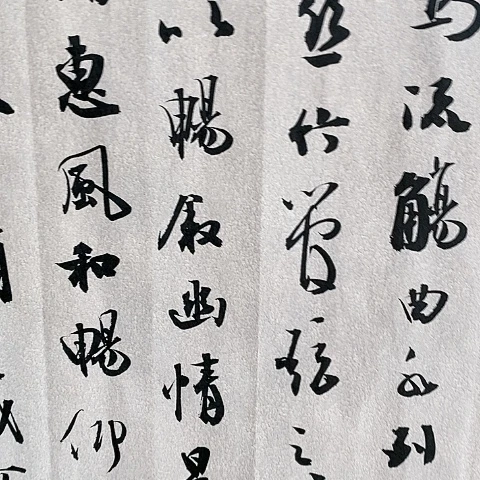 流觴曲水列
絲竹管弦之
以暢敘幽情是
惠風和暢仰